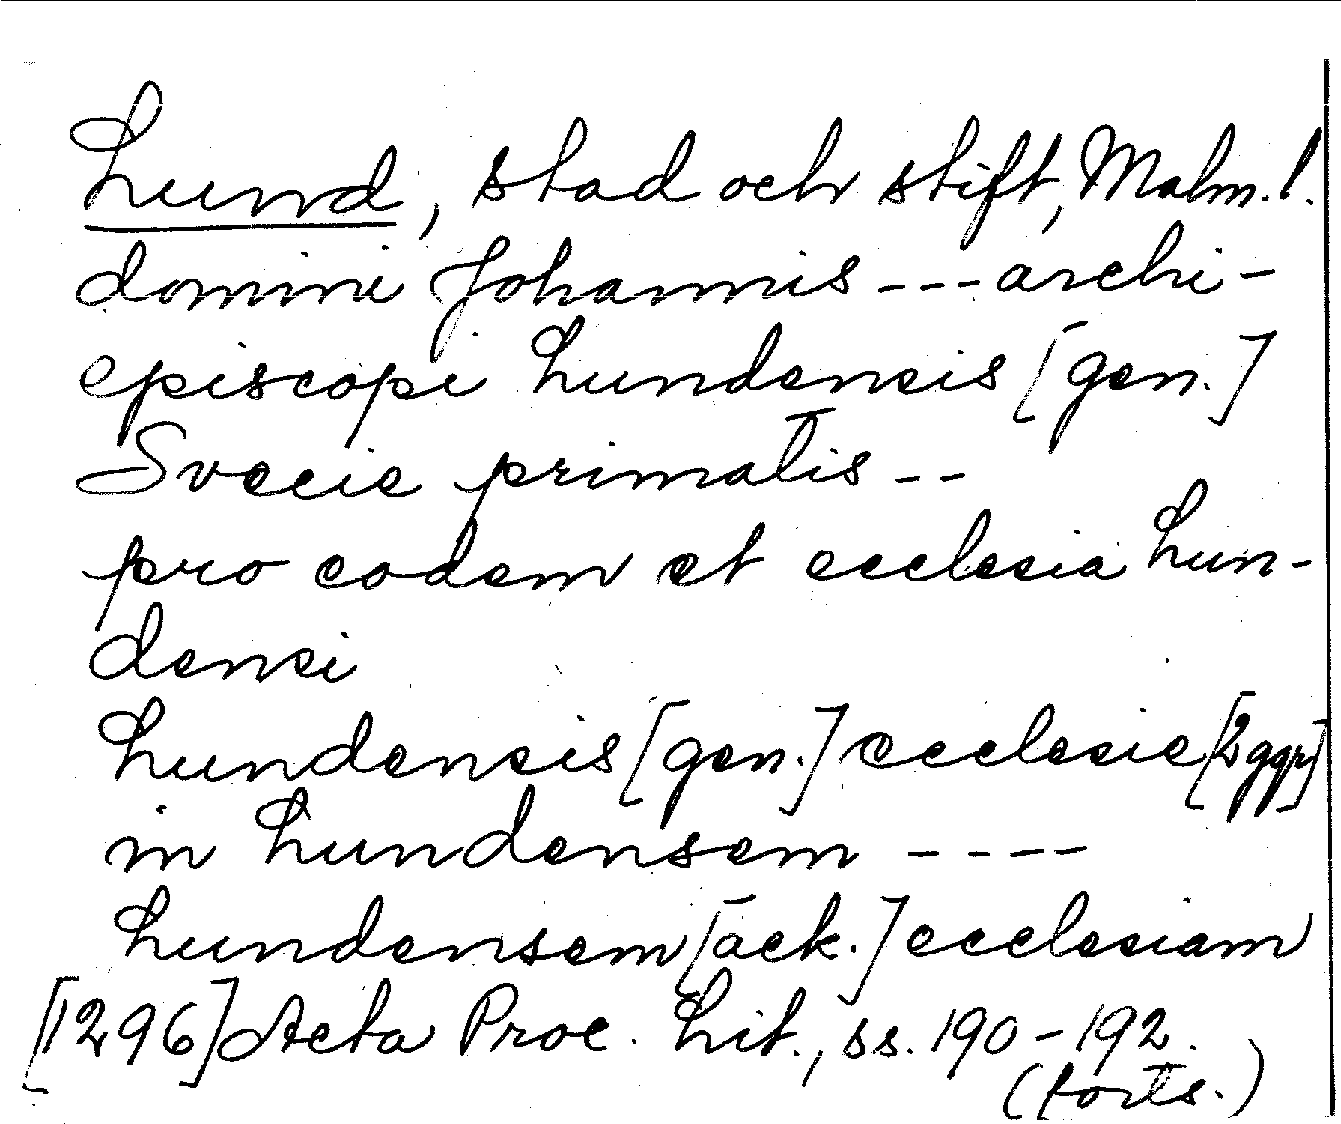 Lund, stad och stift, Malm. l.
domini Johannis --- archi-
episcopi Lundensis [gen.]
Svecie primatis --
pro eodem et ecclesia Lun-
densi
Lundensis [gen.] ecclesie [2 ggr]
in Lundensem ----
Lundensem [ack.] ecclesiam
[1296] Acta Proc. Lit., ss. 190-192.
(forts.)